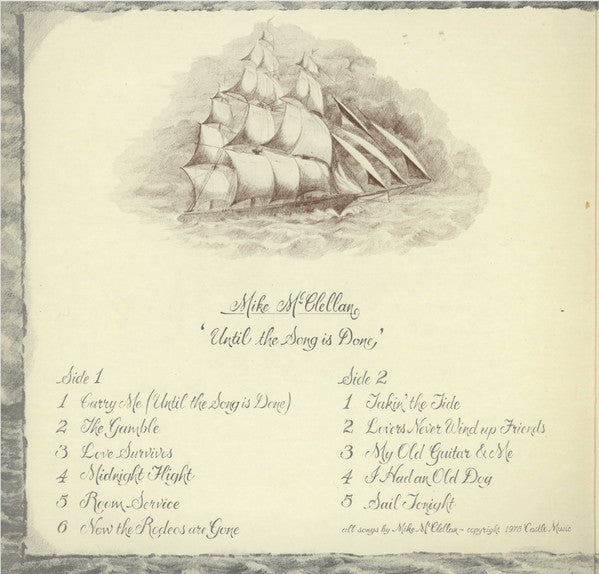 Mike McClellan
'Until the Song is Done'
Side 1
1 Carry Me (Until the Song is Done)
2 The Gamble
3 Love Survives
4 Midnight Flight
5 Room Service
6 Now the Rodeos are Gone
Side 2
1 Takin' the Tide
2 Lovers Never Wind up Friends
3 My Old Guitar & Me
4 I Had an Old Dog
5 Sail Tonight
all songs by Mike McClellan ~ copyright 1975 Castle Music